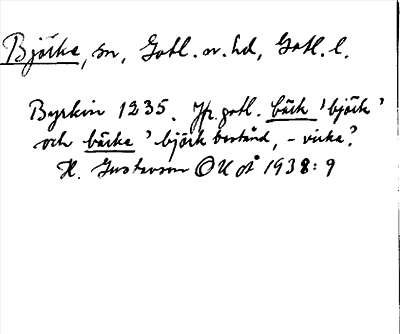 Björke, sn, Gotl. n. hd, Gotl. l.
Byrkin 1235. Jfr gotl. bäck 'björk'
och bärke 'björk bestånd, - vicka?
H. Gustavson OUÅ 1938: 9